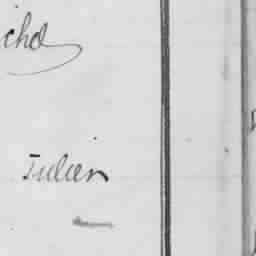 chd
Julien